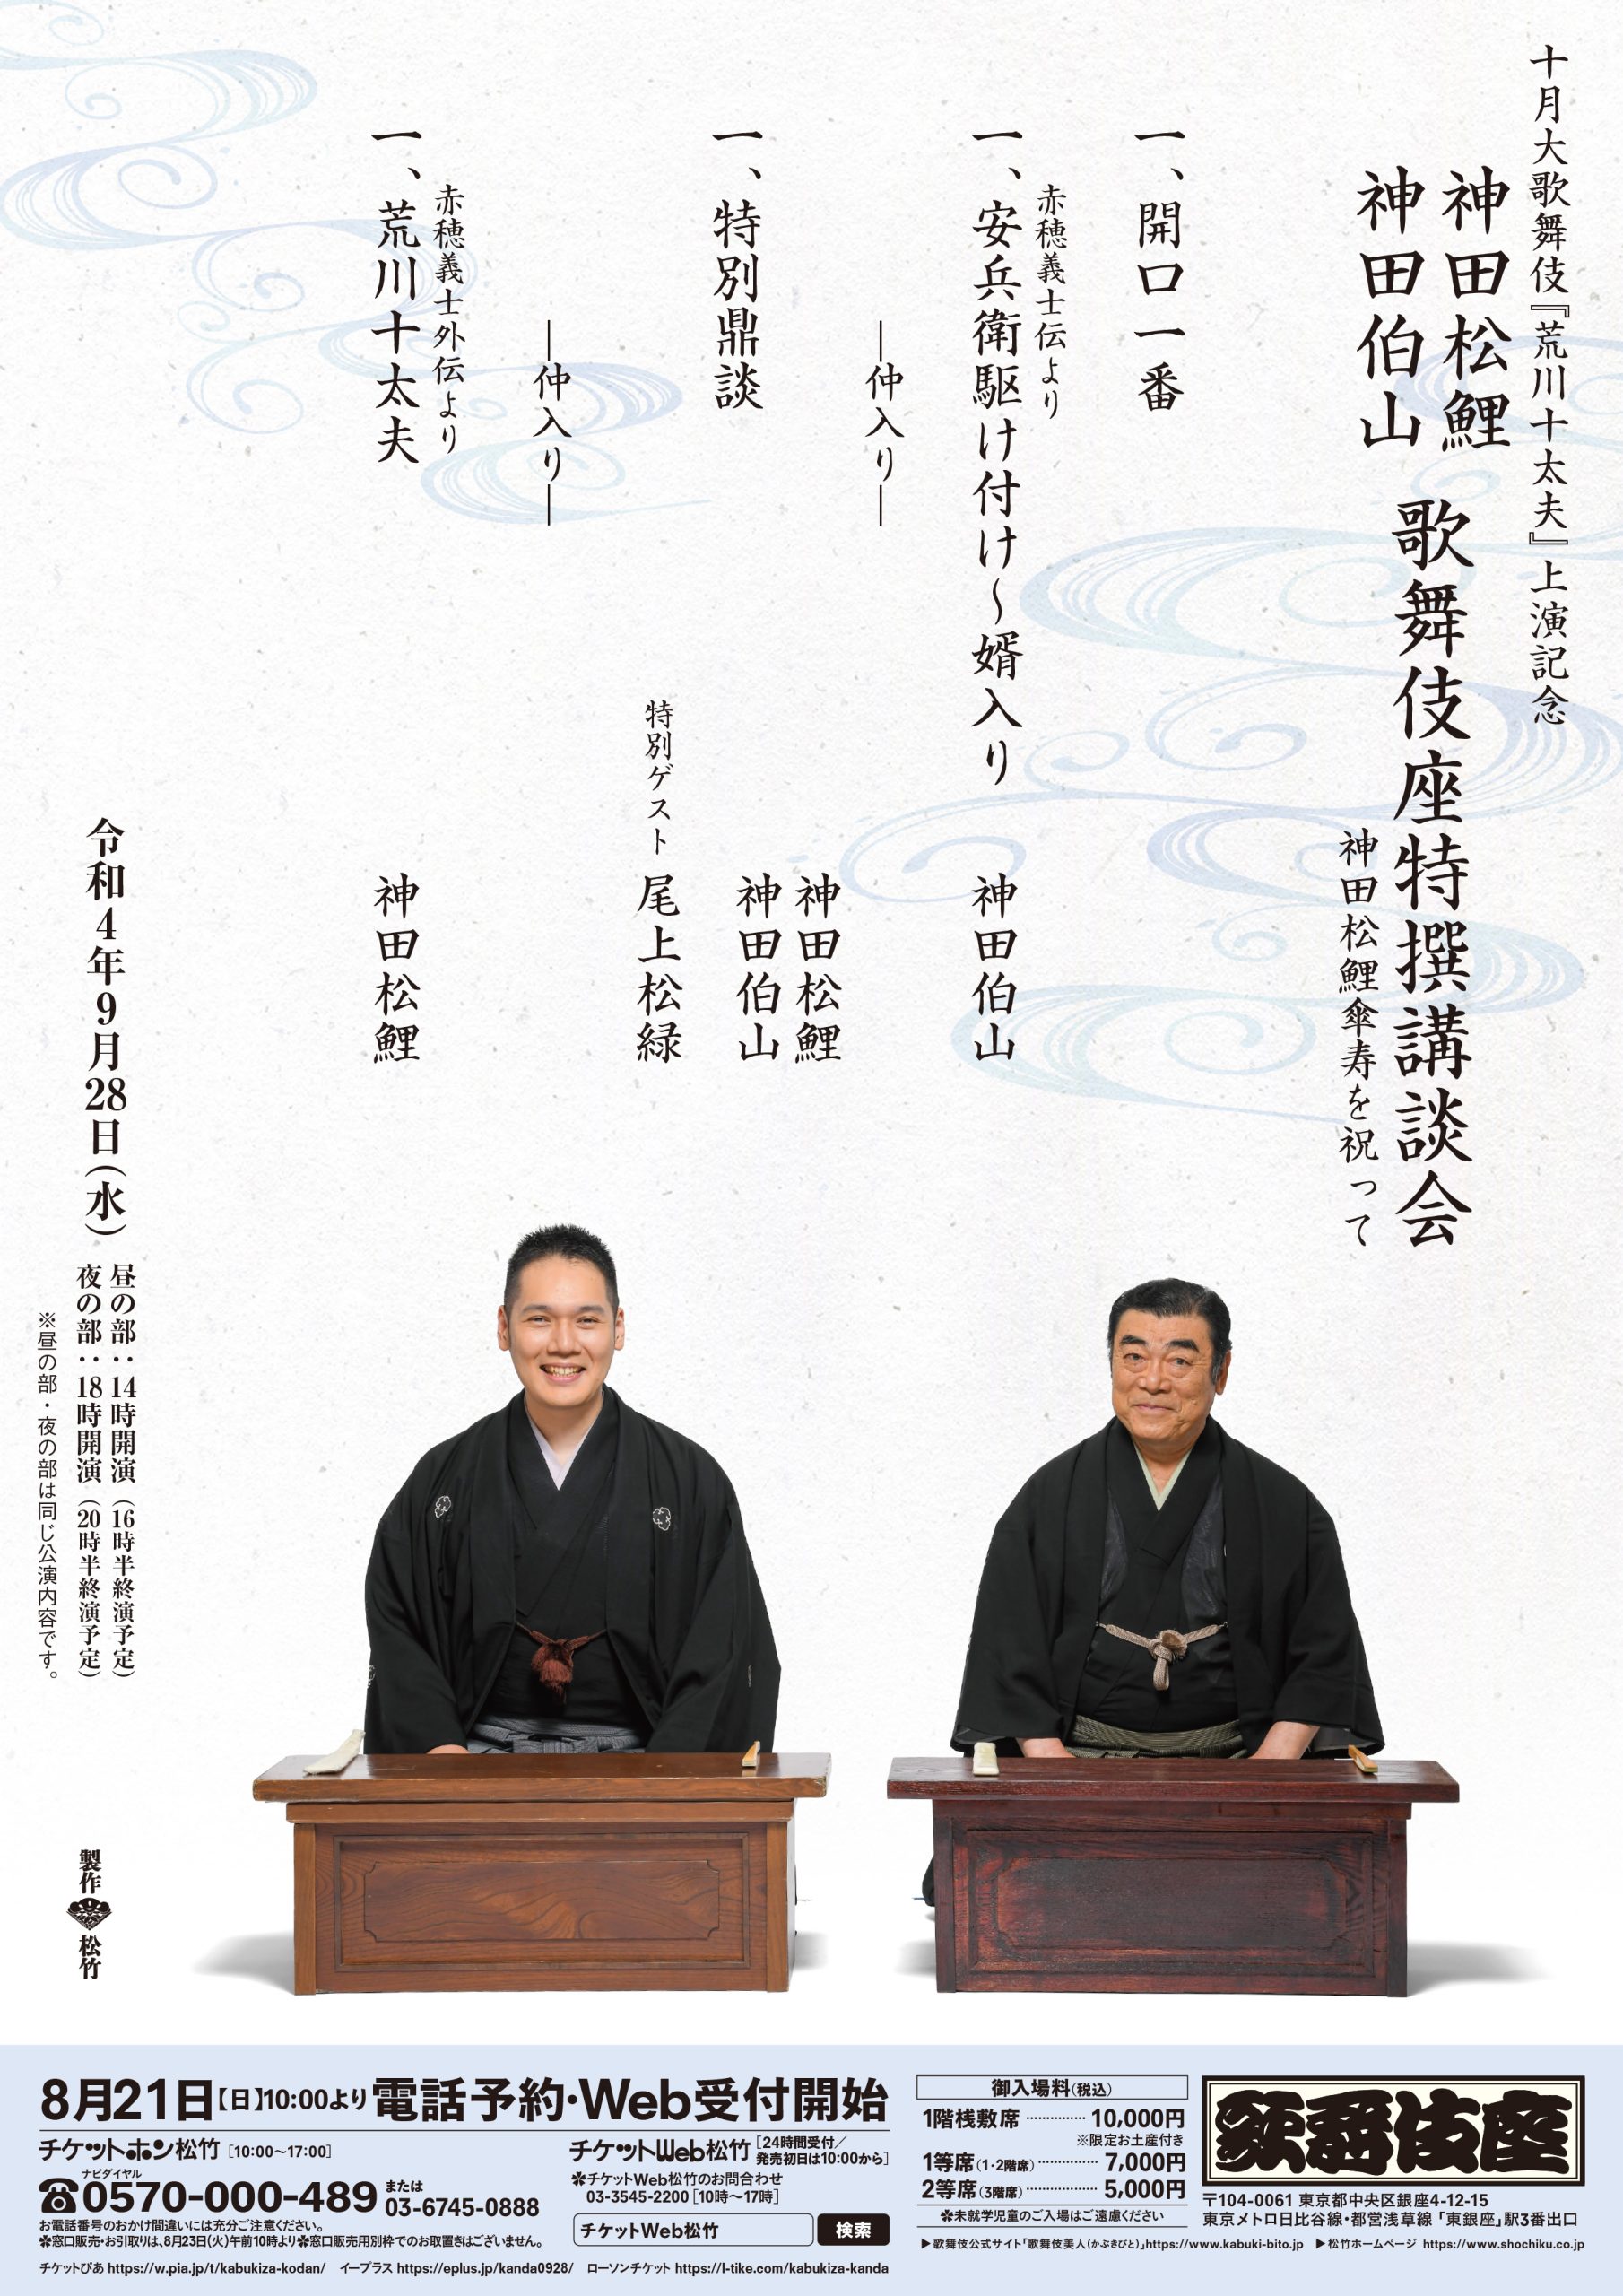 十月大歌舞伎『荒川十太夫』上演記念
神田松鯉
神田伯山
歌舞伎座特撰講談会
神田松鯉傘寿を祝って
一、開口一番
赤穂義士伝より
一、安兵衛駆け付け～婿入り
神田伯山
―仲入り―
一、特別鼎談
神田松鯉
神田伯山
特別ゲスト 尾上松緑
―仲入り―
赤穂義士外伝より
一、荒川十太夫
神田松鯉
令和4年9月28日(水)
昼の部：14時開演(16時半終演予定)
夜の部：18時開演(20時半終演予定)
※昼の部・夜の部は同じ公演内容です。
製作 松竹
8月21日【日】10:00より電話予約・Web受付開始
チケットホン松竹[10:00〜17:00]
ナビダイヤル
☎0570-000-489 または 03-6745-0888
お電話番号のおかけ間違いには充分ご注意ください。
✽窓口販売・お引取りは、8月23日(火)午前10時より✽窓口販売用別枠でのお取置きはございません。
チケットWeb松竹[24時間受付／発売初日は10:00から]
✽チケットWeb松竹のお問合わせ
03-3545-2200[10時〜17時]
チケットWeb松竹 検索
チケットぴあ https://w.pia.jp/t/kabukiza-kodan/ イープラス https://eplus.jp/kanda0928/ ローソンチケット https://l-tike.com/kabukiza-kanda
御入場料(税込)
1階桟敷席 ………… 10,000円
※限定お土産付き
1等席(1・2階席) ………… 7,000円
2等席(3階席) ………… 5,000円
✽未就学児童のご入場はご遠慮ください
歌舞伎座
〒104-0061 東京都中央区銀座4-12-15
東京メトロ日比谷線・都営浅草線「東銀座」駅3番出口
▶歌舞伎公式サイト「歌舞伎美人(かぶきびと)」https://www.kabuki-bito.jp ▶松竹ホームページ https://www.shochiku.co.jp